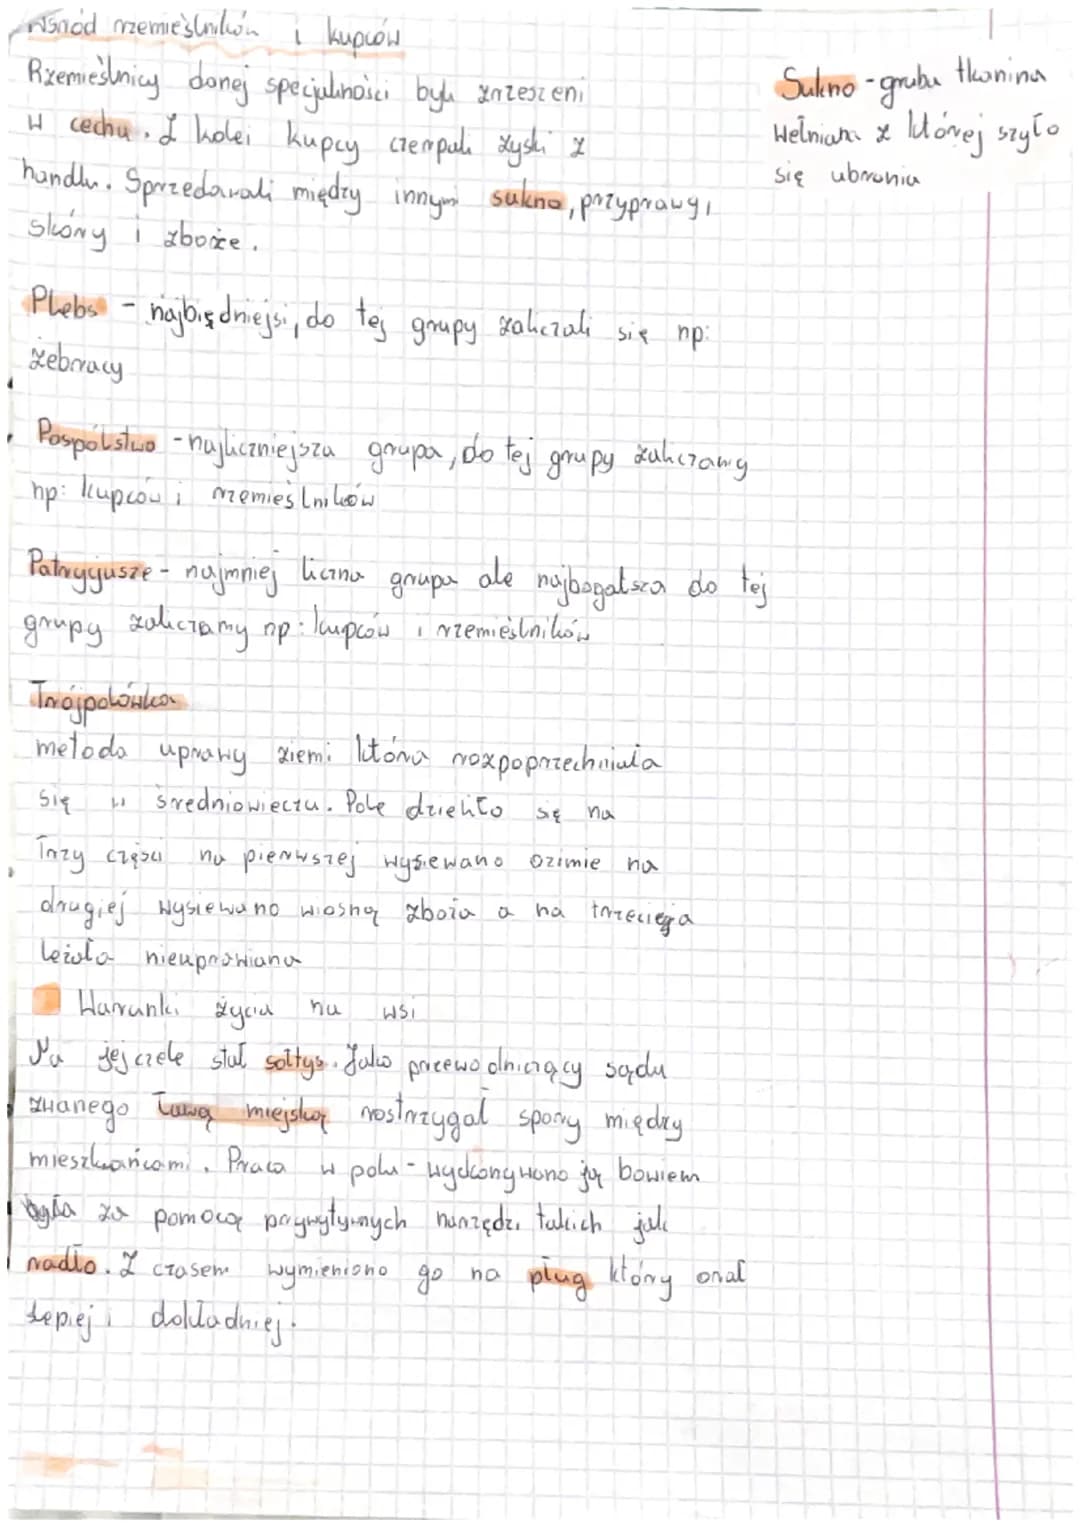 Wśród rzemieślników i kupców
Rzemieślnicy danej specjalności byli zrzeszeni
w cechu. Z kolei kupcy czerpali zyski z
handlu. Sprzedawali między innymi sukno, przyprawy,
skóry i zboże.
Sukno - gruba tkanina
wełniana z której szyto
się ubrania
Plebs - najbiędniejsi, do tej grupy zaliczali się np:
żebracy
Pospólstwo - najliczniejsza grupa, do tej grupy zaliczamy
np: kupców i rzemieślników
Patrycjusze - najmniej liczna grupa ale najbogatsza do tej
grupy zaliczamy np: kupców i rzemieślników
Trójpolówka
metoda uprawy ziemi która rozpoprzechniała
się w średniowieczu. Pole dzieliło się na
Trzy części na pierwszej wysiewano ozimie na
drugiej wysiewano wiosną zboża a na trzeciega
leżała nieuprawiana
Warunki życia na wsi
Na jej czele stał sołtys. Jako przewodniczący sądu
zwanego ławą miejską rostrzygał spory między
mieszkańcami. Praca w polu - wydkonywano ją bowiem
była za pomocą prymytywnych narzędzi takich jak
radło. Z czasem wymieniono go na pług który orał
lepiej i dokładniej.